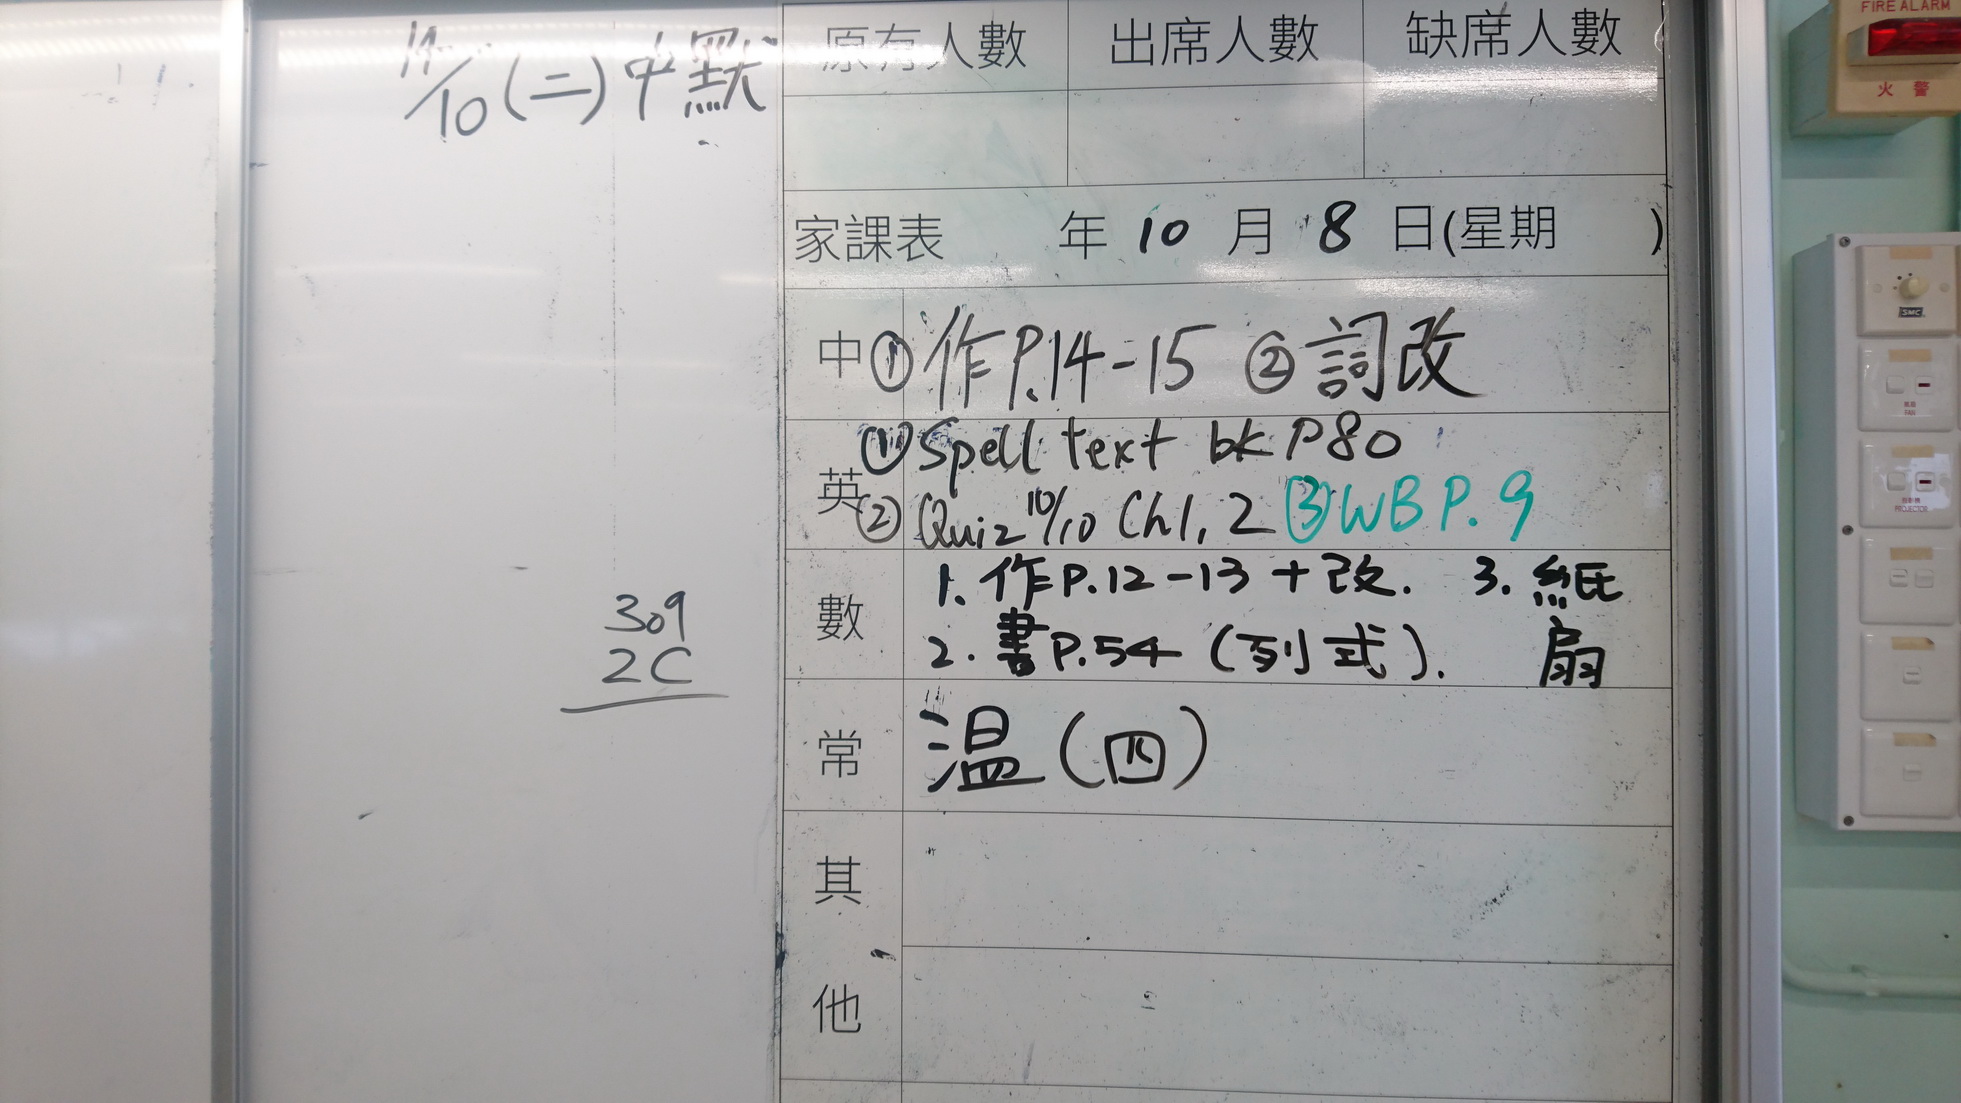 11/10 (二) 中默
原有人數 出席人數 缺席人數
家課表 年 10 月 8 日(星期 )
中 ① 作P.14-15 ② 詞改
英 ① Spell text bk P80
② Quiz 10/10 Ch1, 2 ③ WB P. 9
數 1. 作P.12-13 + 改. 3. 紙扇
2. 書P.54 (列式).
常 温 (四)
其他
309
2C
FIRE ALARM
火警
SMC
FAN
PROJECTOR